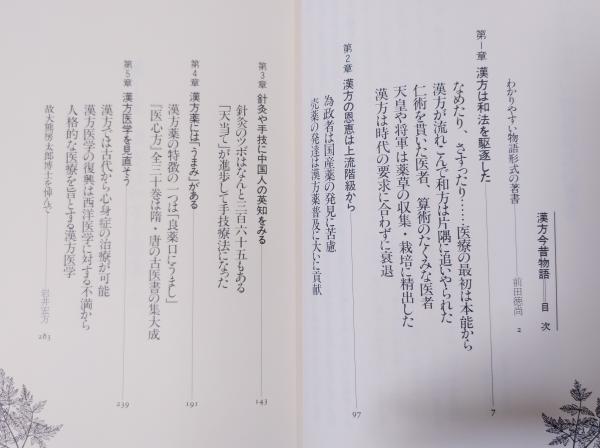 漢方今昔物語——目次
わかりやすい物語形式の著書 前田徳尚 2
第1章 漢方は和法を駆逐した 7
なめたり、さすったり……医療の最初は本能から
漢方が流れこんで和方は片隅に追いやられた
仁術を貫いた医者、算術のたくみな医者
天皇や将軍は薬草の収集・栽培に精出した
漢方は時代の要求に合わずに衰退
第2章 漢方の恩恵は上流階級から 97
為政者は国産薬の発見に苦慮
売薬の発達は漢方薬普及に大いに貢献
第3章 針灸や手技に中国人の英知をみる 143
針灸のツボはなんと三百六十五もある
「天当て」が進歩して手技療法になった
第4章 漢方薬には「うまみ」がある 191
漢方薬の特徴の一つは「良薬口にうまし」
『医心方』全三十巻は隋・唐の古医書の集大成
第5章 漢方医学を見直そう 239
漢方では古代から心身症の治療が可能
漢方医学の復興は西洋医学に対する不満から
人格的な医療を旨とする漢方医学
故大熊房太郎博士を悼んで 岩井宏方 283